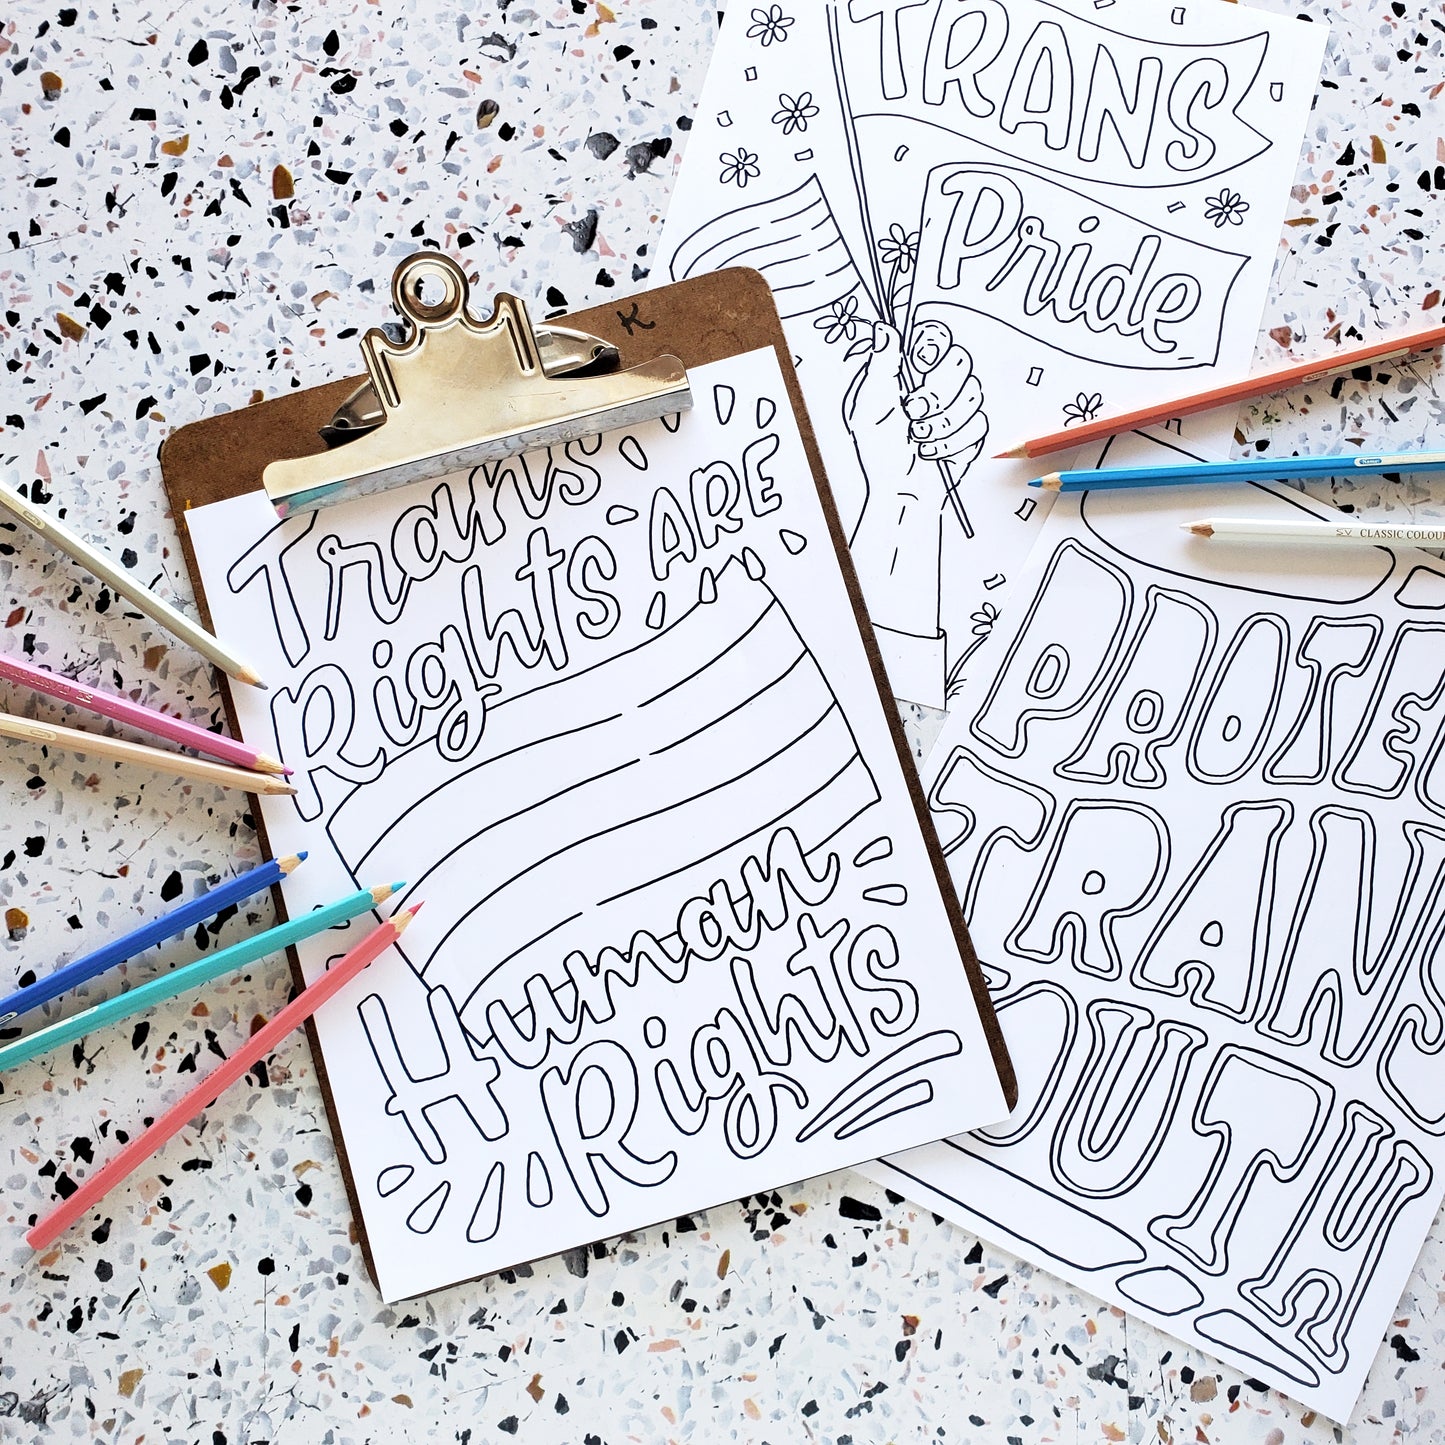 TRANS
Pride
K
Trans
Rights ARE
Human
Rights
PROTE
TRANS
OUTH
CLASSIC COLOU